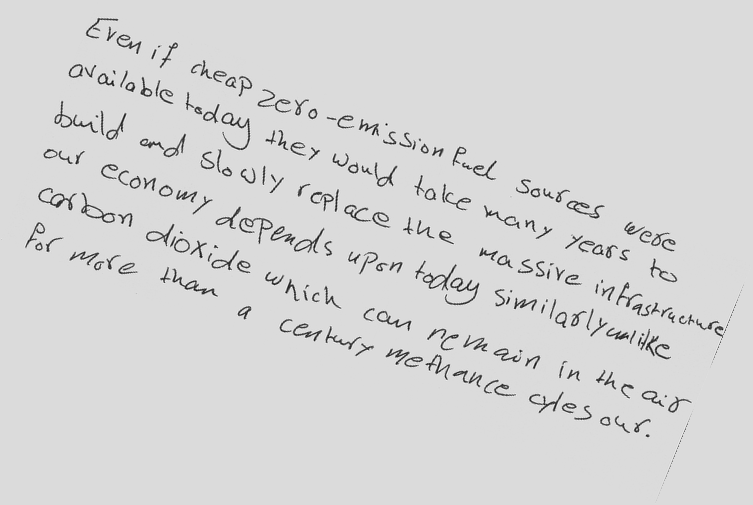 Even if cheap zero-emission fuel sources were
available today they would take many years to
build and slowly replace the massive infrastructure
our economy depends upon today similarly unlike
carbon dioxide which can remain in the air
for more than a century methance cyles our.